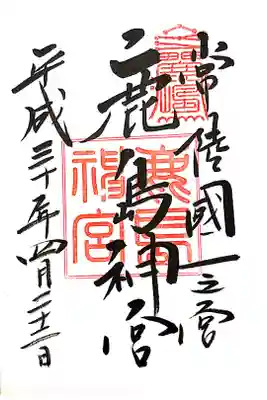 常陸國一之宮
鹿島神宮
平成三十年四月二十二日
鹿島
神宮